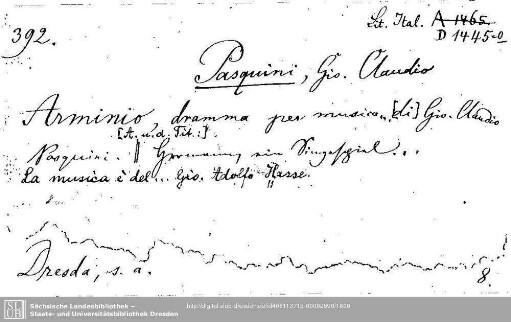 392.
Lit. Ital. A 1465
D 1445-0
Pasquini, Gio. Claudio
Arminio, dramma per musica... [di] Gio. Claudio
[A. u. d. Tit.:]
Pasquini. || Hermann, ein Singespiel...
La musica è del... Gio. Adolfo Hasse.
Dresda, s. a.
8.
Sächsische Landesbibliothek –
Staats- und Universitätsbibliothek Dresden